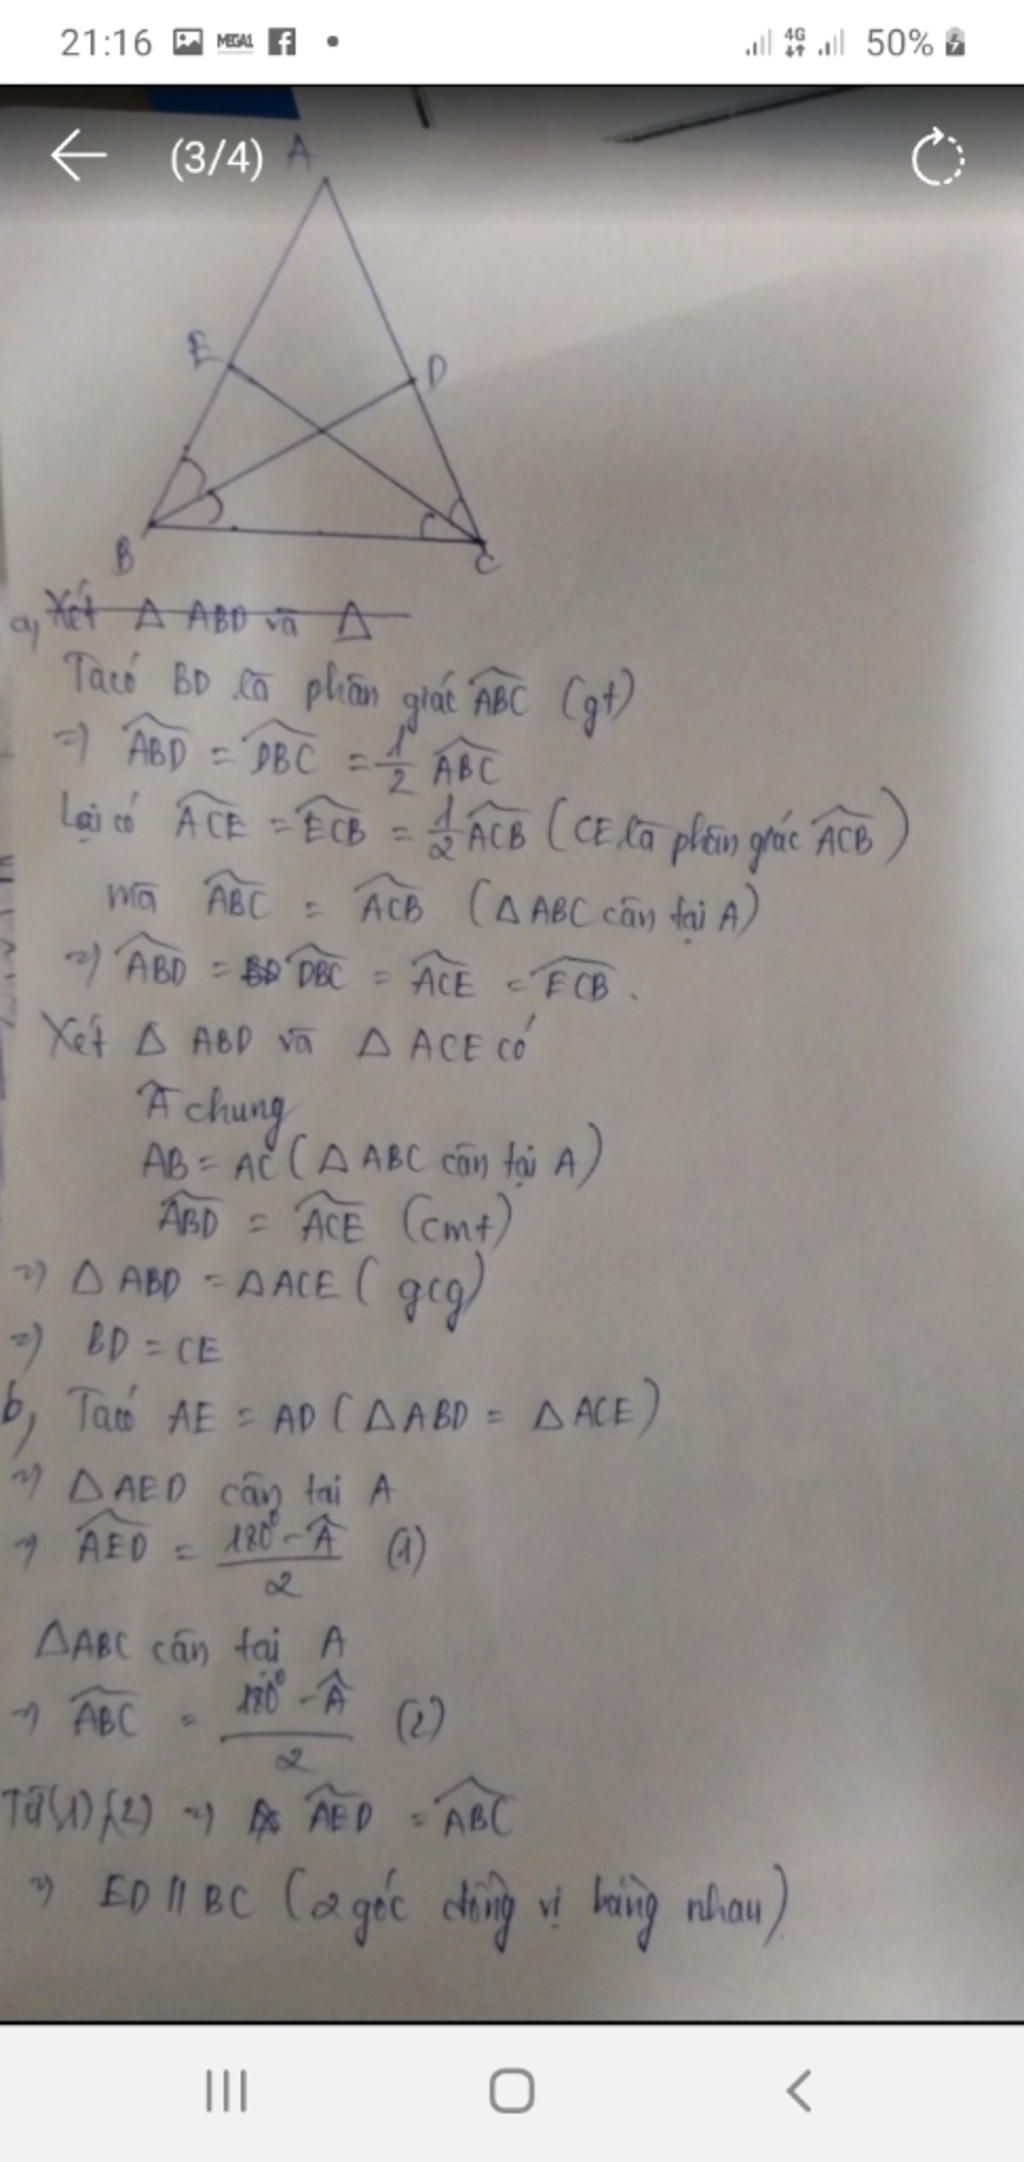 21:16 MEGA1 f 4G 50%
(3/4) A
E
D
B
C
a, Xét Δ ABD và Δ
Ta có BD là phân giác ABC (gt)
=) ABD = DBC = 1/2 ABC
Lại có ACE = ECB = 1/2 ACB (CE là phân giác ACB)
mà ABC = ACB (Δ ABC cân tại A)
=) ABD = DBC = ACE = ECB.
Xét Δ ABD và Δ ACE có
Â chung
AB = AC (Δ ABC cân tại A)
ABD = ACE (cmt)
=) Δ ABD = Δ ACE (gcg)
=) BD = CE
b, Ta có AE = AD (Δ ABD = Δ ACE)
=) Δ AED cân tại A
=) AED = 180° - Â / 2 (1)
Δ ABC cân tại A
=) ABC = 180° - Â / 2 (2)
Từ (1), (2) =) AED = ABC
=) ED // BC (2 góc đồng vị bằng nhau)